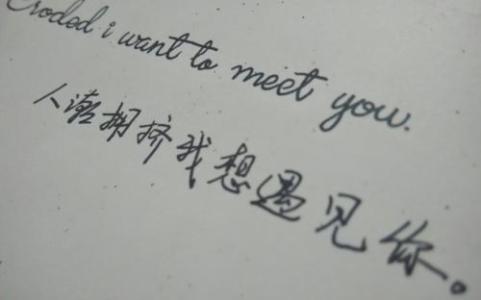 roded i want to meet you.
人潮拥挤我想遇见你。